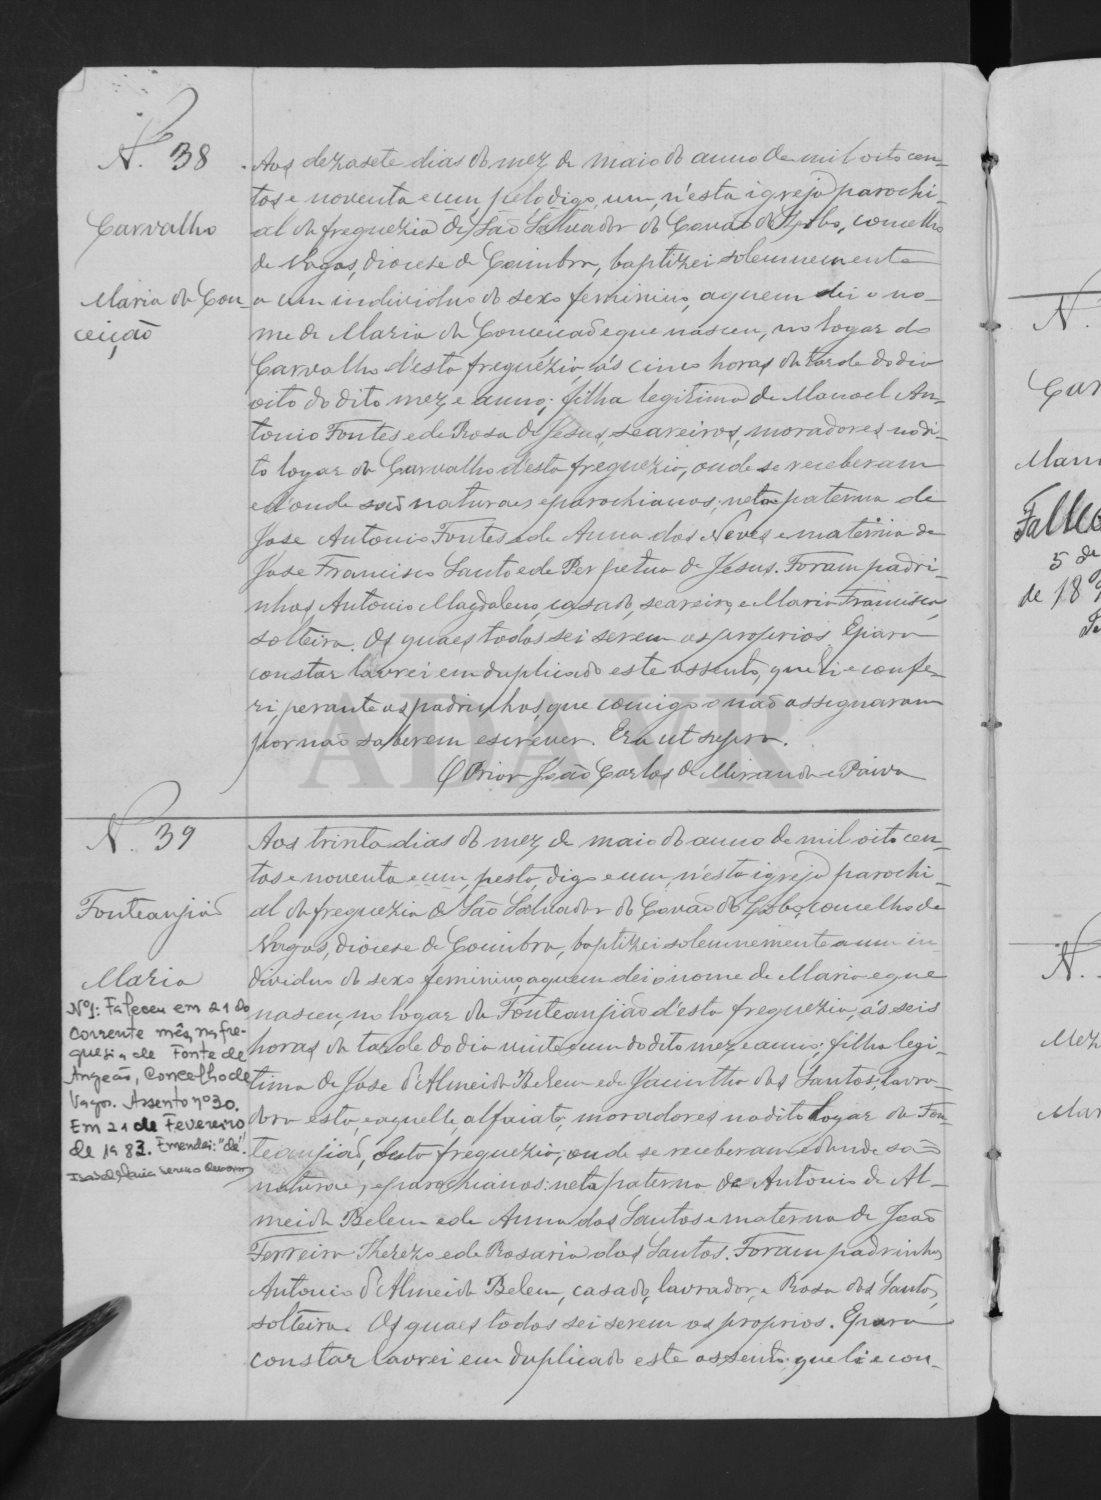 N. 38
Carvalho
Maria da Con-
ceição
Aos dezasete dias do mez de maio do anno de mil oito cen-
tos e noventa e um, pelo digo, um, n'esta igreja parochi-
al da freguezia de São Salvador do Covão do Lobo, concelho
de Vagos, diocese de Coimbra, baptizei solemnemente
a um individuo do sexo feminino, a quem dei o no-
me de Maria da Conceição e que nasceu, no logar do
Carvalho d'esta freguezia, ás cinco horas da tarde do dia
oito do dito mez e anno; filha legitima de Manoel An-
tonio Fontes e de Rosa de Jesus, seareiros, moradores no di-
to logar do Carvalho d'esta freguezia, onde se receberam
e d'onde são naturaes e parochianos; neta paterna de
Jose Antonio Fontes e de Anna das Neves e materna de
Jose Francisco Santo e de Perpetua de Jesus. Foram padri-
nhos, Antonio Magdaleno, casado, seareiro, e Maria Francisca,
solteira. Os quaes todos sei serem os proprios. E para
constar lavrei em duplicado este assento, que li e confe-
ri, perante os padrinhos, que comigo o não assignaram
por não saberem escrever. Era ut supra.
O Prior João Carlos de Miranda e Paiva
N. 39
Fonteanjião
Maria
Nº1: Faleceu em 21 do
corrente mês, na fre-
guesia de Fonte de
Angeão, Concelho de
Vagos. Assento nº 30.
Em 21 de Fevereiro
de 1983. Emendei: "de"
Aos trinta dias do mez de maio do anno de mil oito cen-
tos e noventa e um, pesta, digo e um, n'esta igreja parochi-
al da freguezia de São Salvador do Covão do Lobo, concelho de
Vagos, diocese de Coimbra, baptizei solemnemente a um in-
dividuo do sexo feminino, a quem dei o nome de Maria e que
nasceu, no logar da Fonteanjião d'esta freguezia, ás seis
horas da tarde do dia vinte e um do dito mez e anno; filha legi-
tima de Jose d'Almeida Belem e de Jacintha dos Santos, lavra-
dora esta, e aquelle, alfaiate, moradores no dito logar da Fon-
teanjião, desta freguezia, onde se receberam e donde são
naturaes, e parochianos: neta paterna de Antonio de Al-
meida Belem e de Anna dos Santos e materna de João
Ferreira Thereza e de Rosaria dos Santos. Foram padrinhos
Antonio d'Almeida Belem, casado, lavrador, e Rosa dos Santos,
solteira. Os quaes todos sei serem os proprios. E para
constar lavrei em duplicado este assento, que li e con-
N.
Car
Mari
Fallec
5 de
de 189
N.
Mez
Mar
ADAVR